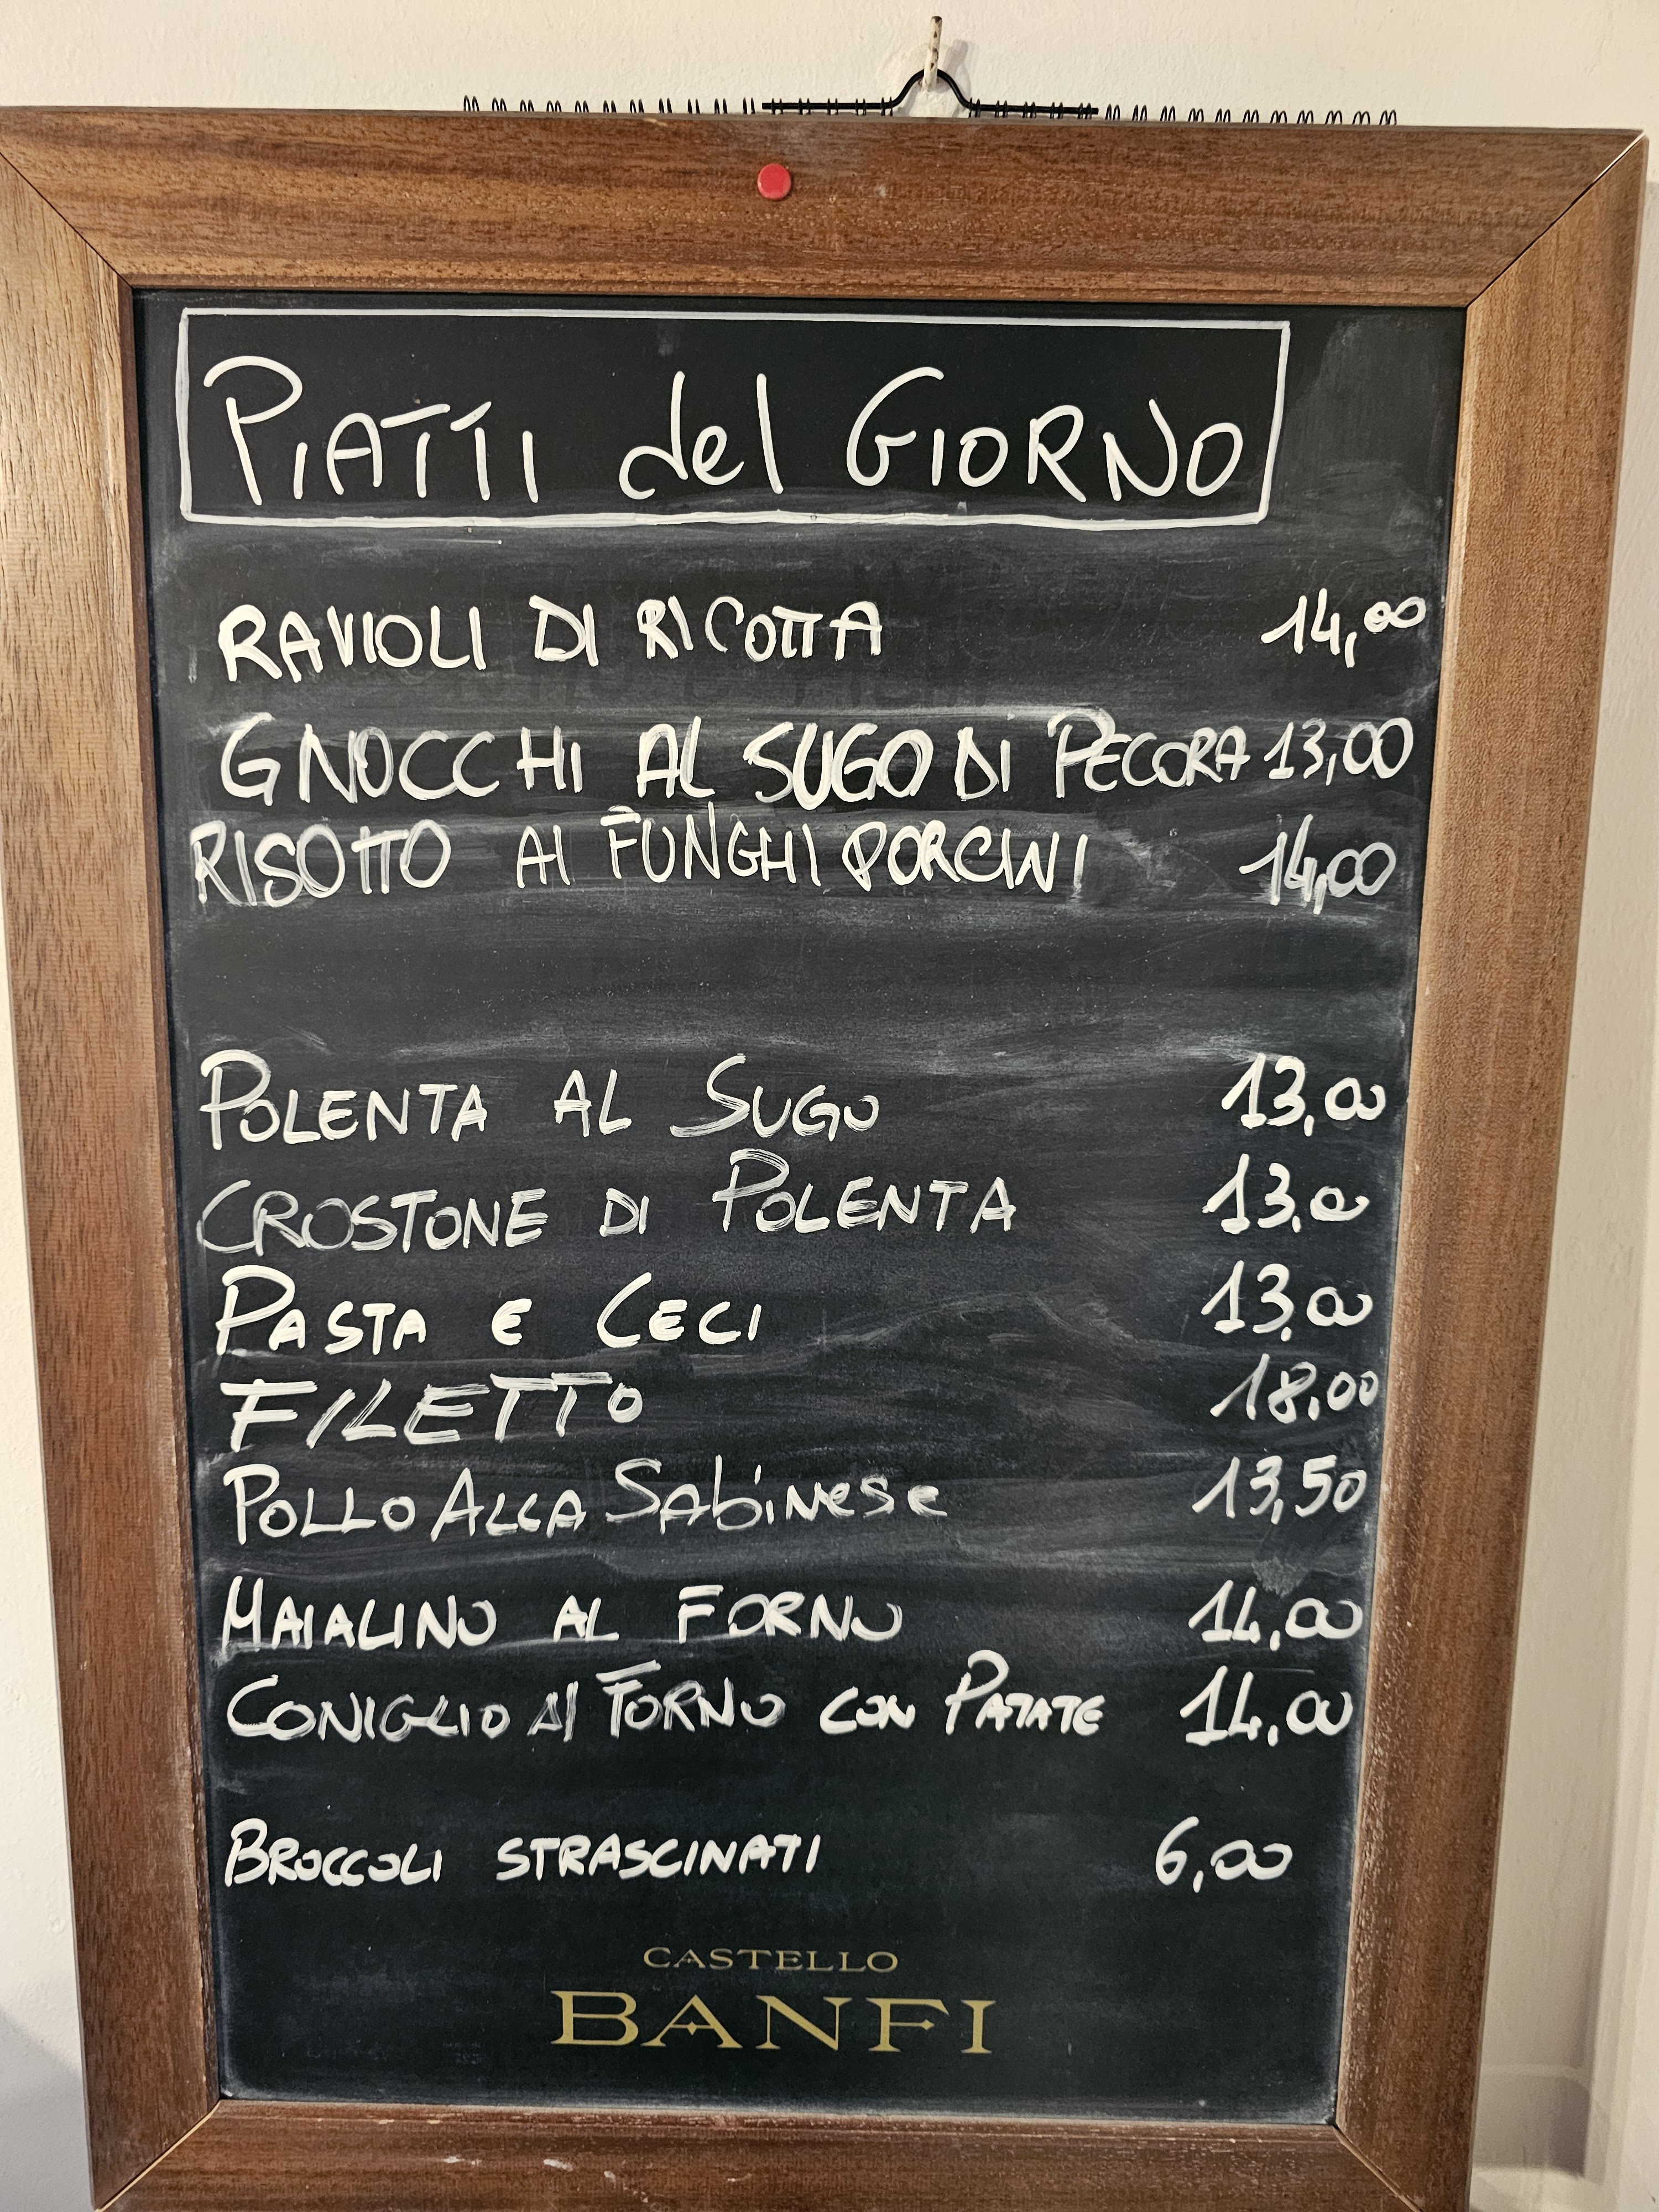 PIATTI del GIORNO
RAVIOLI DI RICOTTA 14,00
GNOCCHI AL SUGO DI PECORA 13,00
RISOTTO AI FUNGHI PORCINI 14,00
POLENTA AL SUGO 13,00
CROSTONE DI POLENTA 13,00
PASTA E CECI 13,00
FILETTO 18,00
POLLO ALLA SAbiNese 13,50
MAIALINO AL FORNO 14,00
CONIGLIO Al FORNO CON PATATE 14,00
BROCCOLI STRASCINATI 6,00
CASTELLO
BANFI